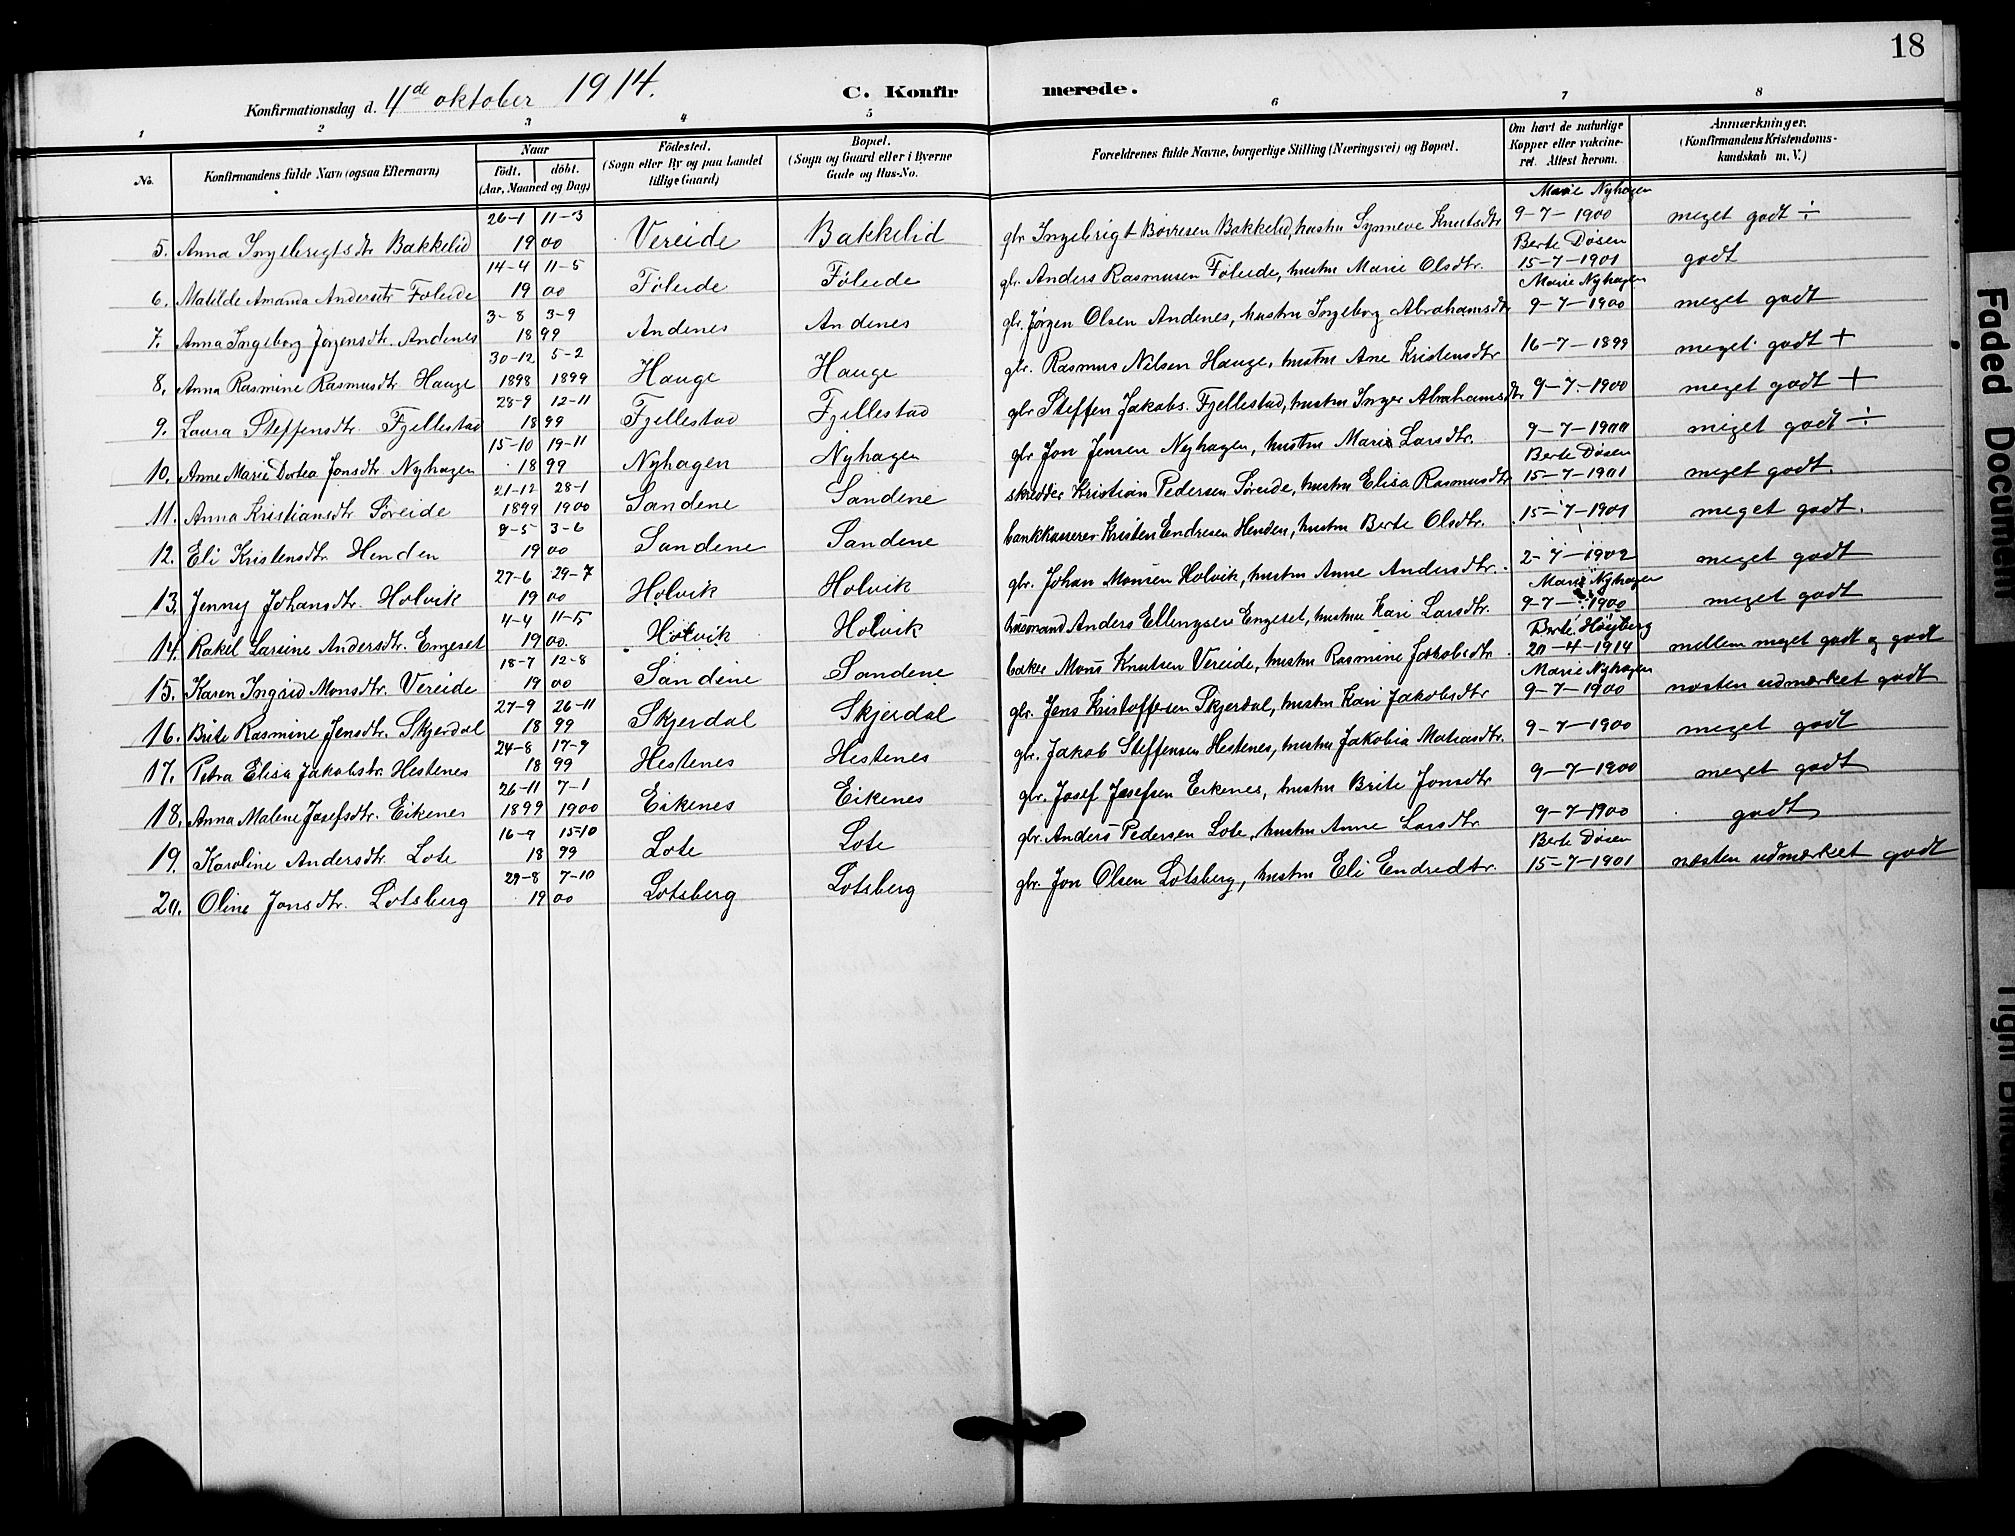 18
Konfirmationsdag d. 4de oktober 1914. C. Konfirmerede.
1 2 3 4 5 6 7 8
No. Konfirmandens fulde Navn (ogsaa Efternavn) Naar födt. döbt. (Aar, Maaned og Dag) Födested. (Sogn eller By og paa Landet tillige Gaard) Bopæl. (Sogn og Gaard eller i Byerne Gade og Hus-No. Forældrenes fulde Navne, borgerlige Stilling (Næringsvei) og Bopæl. Om havt de naturlige Kopper eller vakcineret. Attest herom. Anmærkninger. (Konfirmandens Kristendomskundskab m. V.)
5. Anna Ingebrigtsdtr Bakkelid 26-1 11-3 1900 Vereide Bakkelid gbr Ingebrigt Börresen Bakkelid, hustru Synneve Knutsdtr Marie Nyhagen 9-7-1900 meget godt ÷
6. Matilde Amanda Andersdtr Föleide 14-4 11-5 1900 Föleide Föleide gbr. Anders Rasmusen Föleide, hustru Marie Olsdtr. Berte Døsen 15-7-1901 godt
7. Anna Ingeborg Jørgensdtr. Andenes 3-8 3-9 1899 Andenes Andenes gbr. Jørgen Olsen Andenes, hustru Ingeborg Abrahamsdtr Marie Nyhagen 9-7-1900 meget godt
8. Anna Rasmine Rasmusdtr Hauge 30-12 5-2 1898 1899 Hauge Hauge gbr. Rasmus Nilsen Hauge, hustru Ane Kristensdtr 16-7-1899 meget godt +
9. Laura Steffensdtr. Fjellestad 28-9 12-11 1899 Fjellestad Fjellestad gbr Steffen Jakobs. Fjellestad, hustru Inger Abrahamsdtr 9-7-1900 meget godt +
10. Anne Marie Dortea Jonsdtr Nyhagen 15-10 19-11 1899 Nyhagen Nyhagen gbr Jon Jensen Nyhagen, hustru Marie Larsdtr. 9-7-1900 meget godt ÷
11. Anna Kristiansdtr Søreide 21-12 28-1 1899 1900 Sandene Sandene skrædder Kristian Pedersen Søreide, hustru Elisa Rasmusdtr Berte Døsen 15-7-1901 meget godt
12. Eli Kristensdtr Henden 9-5 3-6 1900 Sandene Sandene bankkasserer Kristen Endresen Henden, hustru Berte Olsdtr. 15-7-1901 meget godt.
13. Jenny Johansdtr. Holvik 27-6 29-7 1900 Holvik Holvik gbr. Johan Monsen Holvik, hustru Anne Andersdtr. 2-7-1902 meget godt
14. Rakel Larsine Andersdtr. Engeset 4-4 11-5 1900. Holvik Holvik husmand Anders Ellengsen Engeset, hustru Kari Larsdtr. Marie Nyhagen 9-7-1900 meget godt
15. Karen Ingrid Monsdtr. Vereide 18-7 12-8 1900 Sandene Sandene baker Mons Knutsen Vereide, hustru Rasmine Jakobsdtr Berte Høyberg 20-4-1914 mellem meget godt og godt
16. Brite Rasmine Jensdtr. Skjerdal 27-9 26-11 1899 Skjerdal Skjerdal gbr. Jens Kristoffersen Skjerdal, hustru Kari Jakobsdtr Marie Nyhagen 9-7-1900 næsten udmærket godt
17. Petra Elisa Jakobsdtr. Hestenes 24-8 17-9 1899 Hestenes Hestenes gbr. Jakob Steffensen Hestenes, hustru Jakobia Matiasdtr. 9-7-1900 meget godt
18. Anna Malene Josefsdtr. Eikenes 26-11 7-1 1899 1900 Eikenes Eikenes gbr. Josef Josefsen Eikenes, hustru Brite Jonsdtr 9-7-1900 meget godt
19. Karoline Andersdtr Lote 16-9 15-10 1899 Lote Lote gbr. Anders Pedersen Lote, hustru Anne Larsdtr. 9-7-1900 godt
20. Oline Jonsdtr. Lotsberg 29-8 7-10 1900 Lotsberg Lotsberg gbr. Jon Olsen Lotsberg, hustru Eli Endredtr. Berte Døsen 15-7-1901 næsten udmærket godt
Faded Document